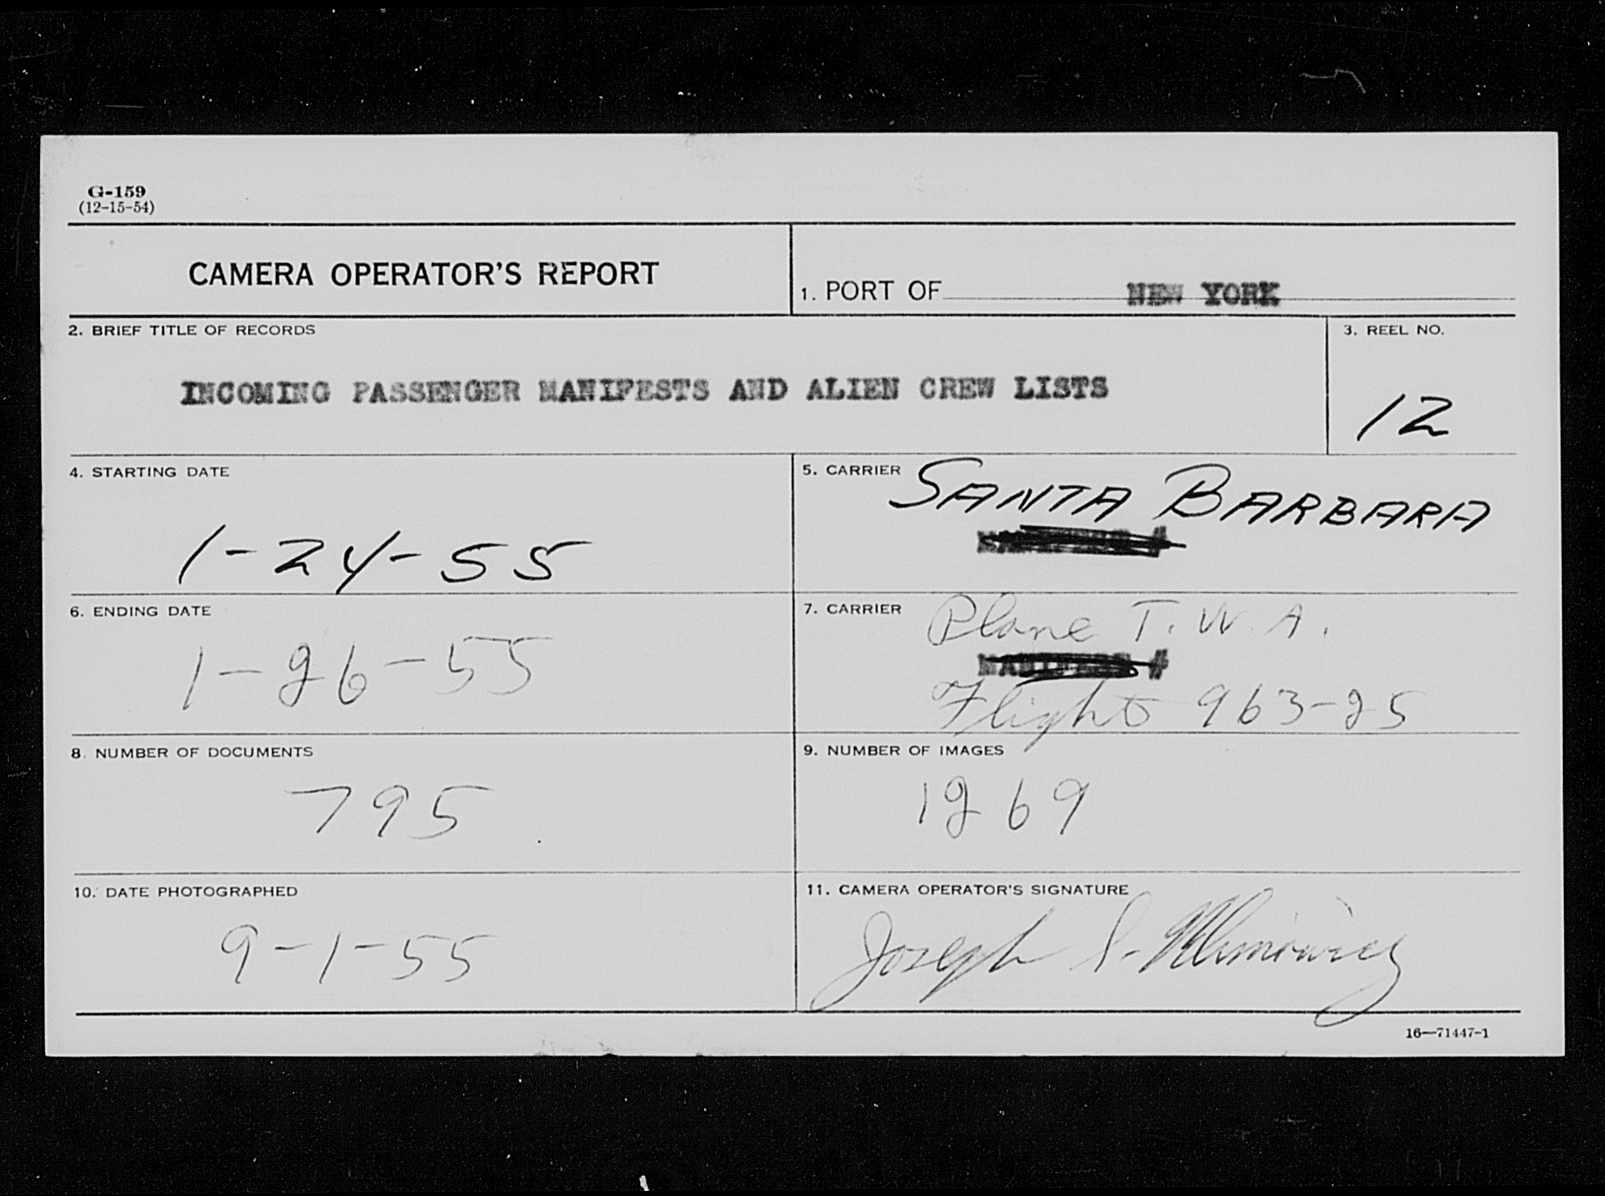 G-159
(12-15-54)
CAMERA OPERATOR'S REPORT
1. PORT OF NEW YORK
2. BRIEF TITLE OF RECORDS
INCOMING PASSENGER MANIFESTS AND ALIEN CREW LISTS
3. REEL NO.
12
4. STARTING DATE
1-24-55
5. CARRIER
SANTA BARBARA
6. ENDING DATE
1-26-55
7. CARRIER
Plane T.W.A.
MANIFEST #
Flight 963-25
8. NUMBER OF DOCUMENTS
795
9. NUMBER OF IMAGES
1269
10. DATE PHOTOGRAPHED
9-1-55
11. CAMERA OPERATOR'S SIGNATURE
Joseph
16—71447-1